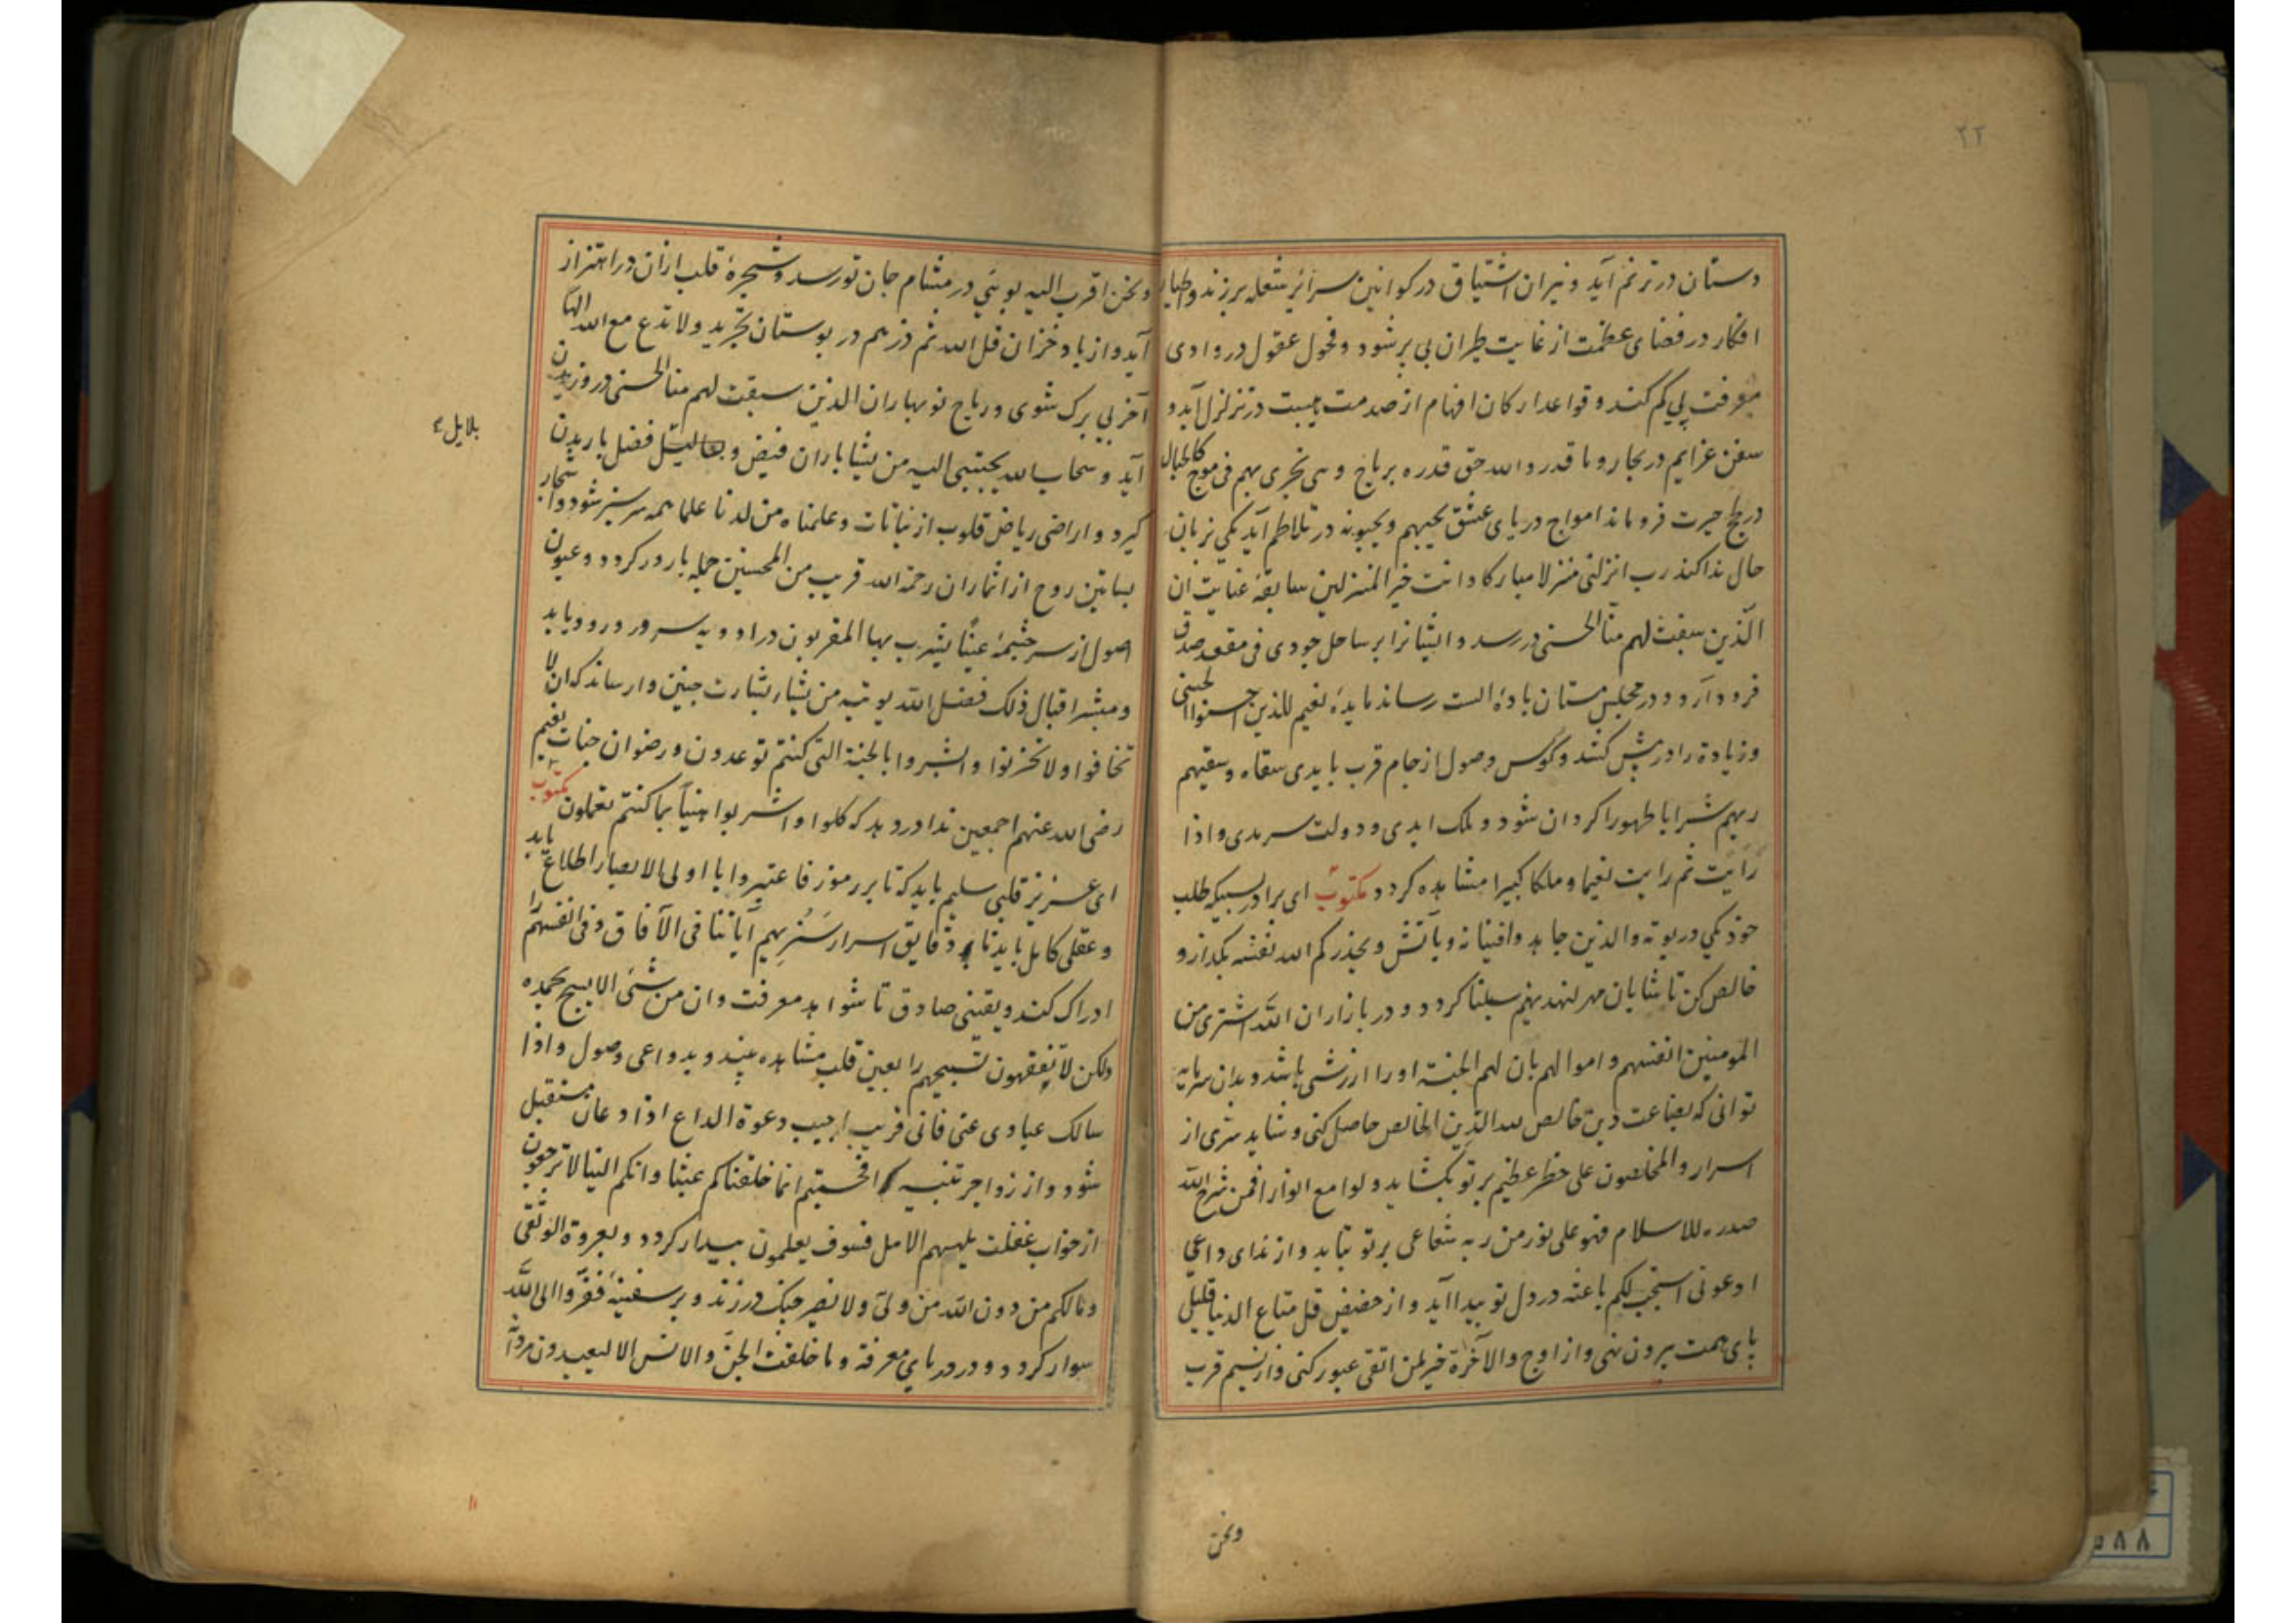 ۲۲
دستان در ترنم آید و نیران اشتیاق در کوانین سرائر شعله برزند و اطیار
افکار در فضای عظمت از غایت طیران بی پر شود و فحول عقول در وادی
معرفت پی کم کند و قواعد ارکان افهام از صدمت هیبت در تزلزل آید و
سفن عزایم در بحار و ما قدروا الله حق قدره بریاح و هی تجری بهم فی موج کالجبال
در لجج حیرت فرو ماند امواج دریای عشق یحبهم و یحبونه در تلاطم آید یکی بزبان
حال ندا کند رب انزلنی منزلا مبارکا و انت خیر المنزلین سابقهٔ عنایت ان
الذین سبقت لهم منا الحسنی در رسد و ایشانرا بر ساحل جودی فی مقعد صدق
فرود آرد و در مجلس مستان بادهٔ الست رساند مایدهٔ نعیم للذین احسنوا الحسنی
و زیادة را در پیش کنند و کؤس وصول از جام قرب بایدی سقاه و سقیهم
ربهم شرابا طهورا کردان شود و ملک ابدی و دولت سرمدی و اذا
رایت ثم رایت نعیما و ملکا کبیرا مشاهده کردد مکتوب ای برادر سبیکه طلب
خود یکی در بوته والذین جاهدوا فینا نه و بآتش و یحذرکم الله نفسه بکداز و
خالص کن تا شایان مهر لنهدینهم سبلنا کردد و در بازار ان الله اشتری من
المومنین انفسهم و اموالهم بان لهم الجنة او را ارزشی باشد و بدان سرمایه
توانی که بضاعت دین خالص لله الدین الخالص حاصل کنی و شاید سری از
اسرار والمخلصون علی خطر عظیم بر تو بکشاید و لوامع انوار افمن شرح الله
صدره للاسلام فهو علی نور من ربه شعاعی بر تو بتابد و از ندای داعی
ادعونی استجب لکم باعثه در دل تو پیدا آید و از حضیض قل متاع الدنیا قلیل
پای همت بیرون نهی و از اوج والآخرة خیر لمن اتقی عبور کنی و از نسیم قرب
ونحن
ونحن اقرب الیه بوئی در مشام جان تو رسد و شجرهٔ قلب ازان در اهتزاز
آید و از باد خزان قل الله ثم ذرهم در بوستان تجرید و لا تدع مع الله الها
آخر بی برک شوی و ریاح نوبهاران الذین سبقت لهم منا الحسنی در وزیدن
آید و سحاب الله یجتبی الیه من یشا باران فیض و فضل باریدن
کیرد و اراضی ریاض قلوب از نباتات و علمناه من لدنا علما همه سرسبز شود و اشجار
بساتین روح از اثمار ان رحمة الله قریب من المحسنین جمله بارور کردد و عیون
اصول از سرچشمهٔ عینا یشرب بها المقربون در اودیه سرور ورود یابد
و مبشر اقبال ذلک فضل الله یوتیه من یشا بشارت چنین وارساند که ان لا
تخافوا و لا تحزنوا و ابشروا بالجنة التی کنتم توعدون و رضوان جنات نعیم
رضی الله عنهم اجمعین ندا در دهد که کلوا و اشربوا هنیئا بما کنتم تعملون مکتوب
ای عزیز قلبی سلیم باید که تا بر رموز فاعتبروا یا اولی الابصار اطلاع یابد
و عقلی کامل باید تا دقایق اسرار سنریهم آیاتنا فی الآفاق و فی انفسهم را
ادراک کند و یقینی صادق تا شواهد معرفت و ان من شئی الا یسبح بحمده
ولکن لا تفقهون تسبیحهم را بعین قلب مشاهده بیند و بدواعی وصول و اذا
سالک عبادی عنی فانی قریب اجیب دعوة الداع اذا دعان مستقبل
شود و از زواجر تنبیه افحسبتم انما خلقناکم عبثا و انکم الینا لا ترجعون
از خواب غفلت یلههم الامل فسوف یعلمون بیدار کردد و بعروة الوثقی
و مالکم من دون الله من ولی و لا نصیر چنک در زند و بر سفینهٔ ففروا الی الله
سوار کردد و در دریای معرفة و ما خلقت الجن والانس الا لیعبدون مردانه
بلایل